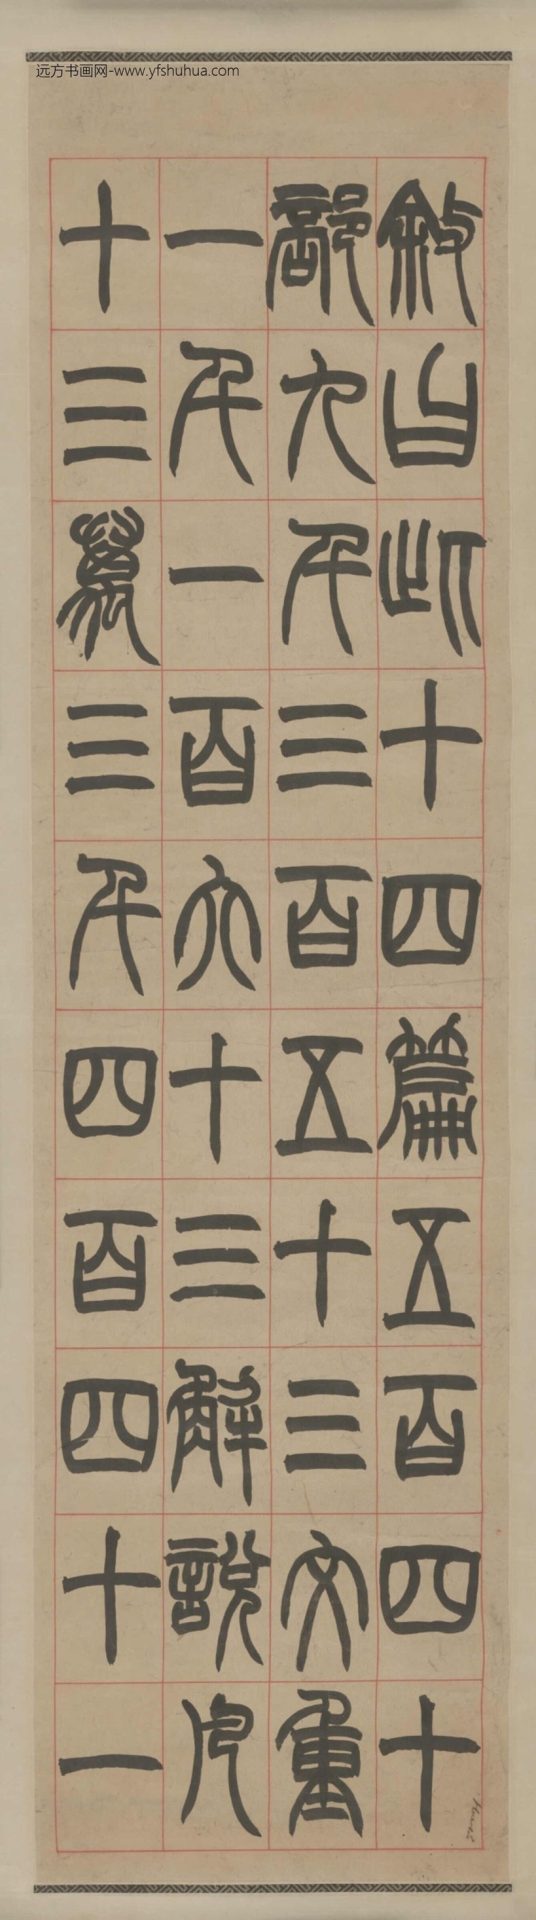 远方书画网-www.yfshuhua.com
敘曰此十四篇五百四十
部九千三百五十三文重
一千一百六十三解說凡
十三萬三千四百四十一